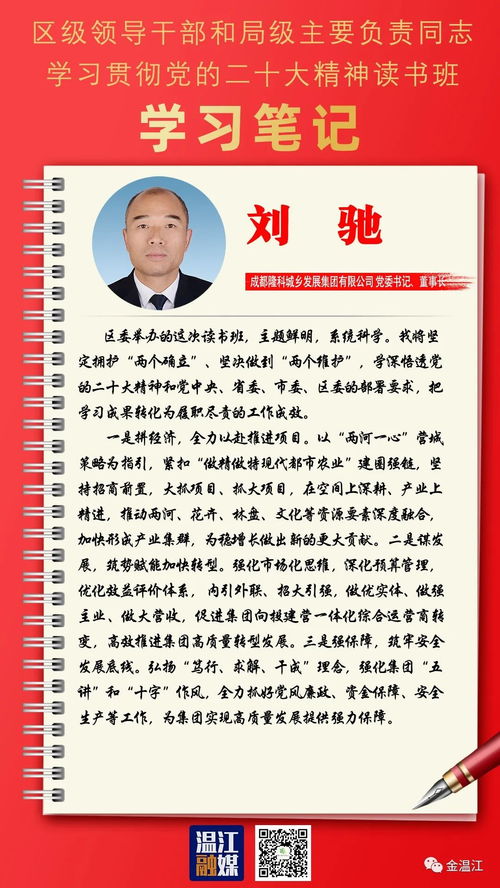 区级领导干部和局级主要负责同志
学习贯彻党的二十大精神读书班
学习笔记
刘 驰
成都隆科城乡发展集团有限公司 党委书记、董事长
区委举办的这次读书班，主题鲜明，系统科学。我将坚
定拥护“两个确立”、坚决做到“两个维护”，学深悟透党
的二十大精神和党中央、省委、市委、区委的部署要求，把
学习成果转化为履职尽责的工作成效。
一是拼经济，全力以赴推进项目。以“两河一心”营城
策略为指引，紧扣“做精做特现代都市农业”建圈强链，坚
持招商前置，大抓项目、抓大项目，在空间上深耕、产业上
精进，推动两河、花卉、林盘、文化等资源要素深度融合，
加快形成产业集群，为稳增长做出新的更大贡献。二是谋发
展，筑势赋能加快转型。强化市场化思维，深化预算管理，
优化效益评价体系， 内引外联、招大引强，做优实体、做强
主业、做大营收，促进集团向投建营一体化综合运营商转
变，高效推进集团高质量转型发展。三是强保障，筑牢安全
发展底线。弘扬“笃行、求解、干成”理念，强化集团“五
讲”和“十字”作风，全力抓好党风廉政、资金保障、安全
生产等工作，为集团实现高质量发展提供强力保障。
温江
融媒
金温江